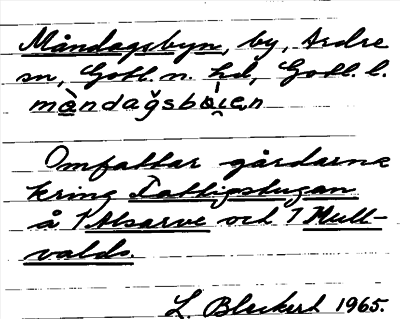 Måndagsbyn, by, Ardre
sn, Gotl. n. hd, Gotl. l.
màndağsbòi̯en
Omfattar gårdarna
kring Fattigstugan
å 1 Alsarve och 1 Mull-
valds.
L. Bleckert 1965.